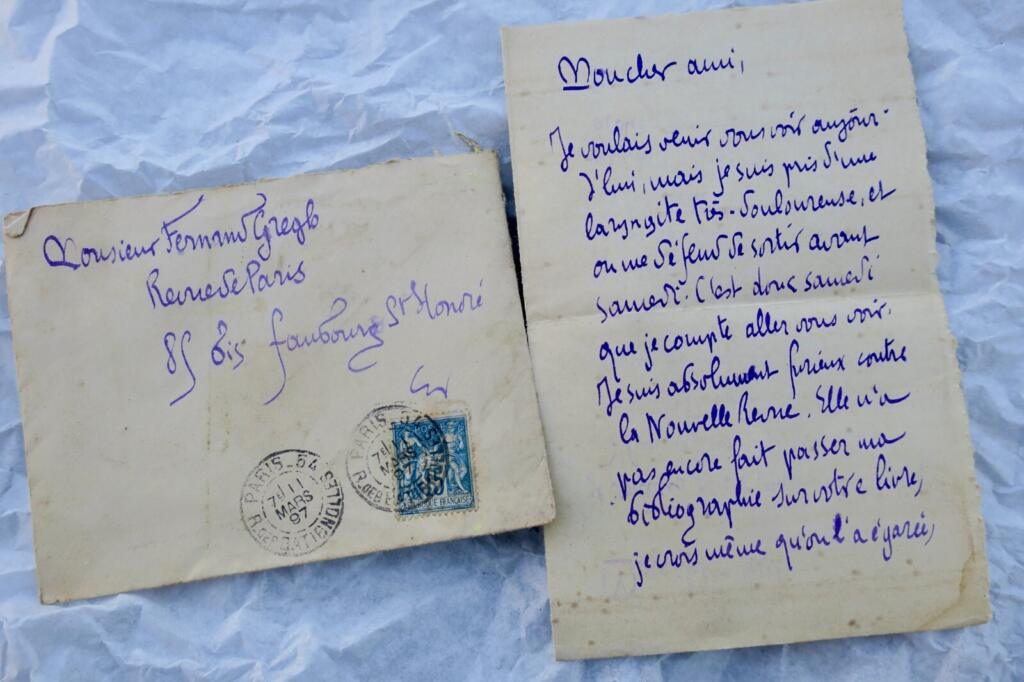 Monsieur Fernand Gregh
Revue de Paris
85 bis faubourg St Honoré
PARIS_54
7E 11
MARS
97
R. DES BATIGNOLLES
PARIS_54
7E
MARS
97
R. DES BATIGNOLLES
RÉPUBLIQUE FRANÇAISE
Mon cher ami,
Je voulais venir vous voir aujour-
d'hui, mais je suis pris d'une
laryngite très-douloureuse, et
on me défend de sortir avant
samedi. C'est donc samedi
que je compte aller vous voir.
Je suis absolument furieux contre
la Nouvelle Revue. Elle n'a
pas encore fait passer ma
bibliographie sur votre livre,
je crois même qu'on l'a égarée,